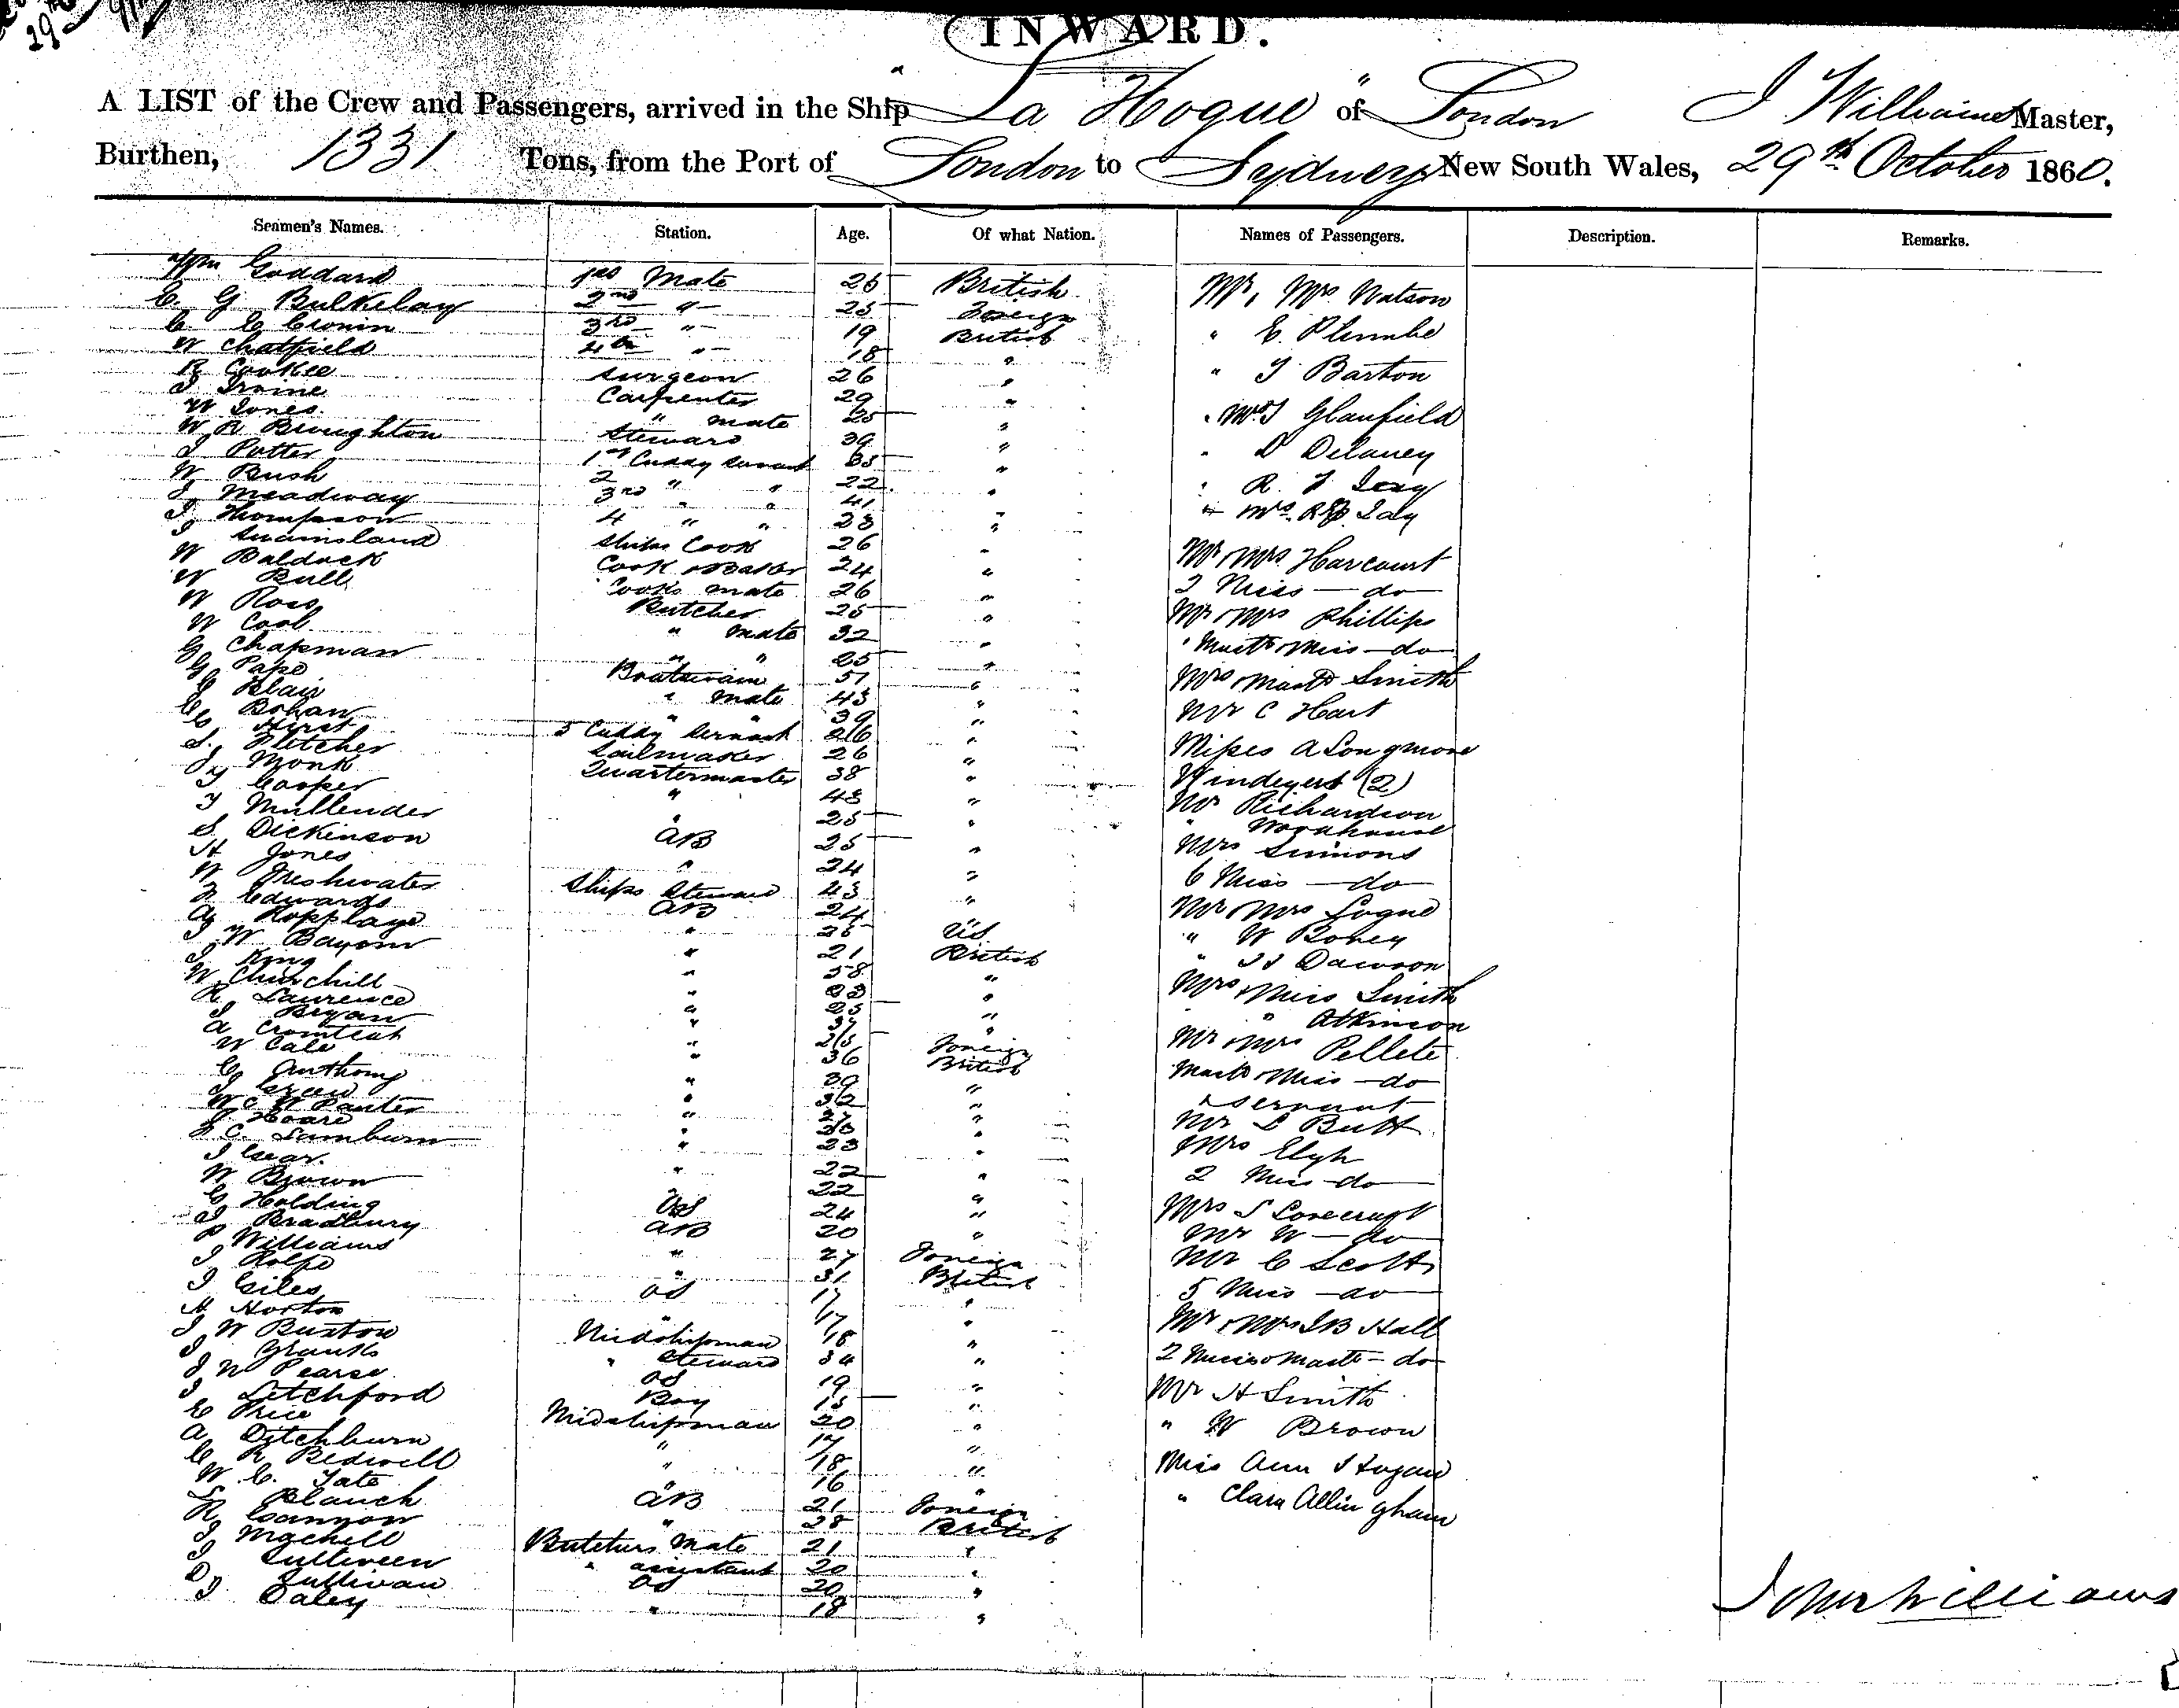 INWARD.
A LIST of the Crew and Passengers, arrived in the Ship "La Hogue" of London J Williams Master,
Burthen, 1331 Tons, from the Port of London to Sydney New South Wales, 29th October 1860.
Seamen's Names. Station. Age. Of what Nation. Names of Passengers. Description. Remarks.
Wm Goddard 1st Mate 26 British
C. G Bulkeley 2nd " 25 Foreign
C C Cronin 3rd " 19 British
W Chatfield 4th " 18 "
R Cookee Surgeon 26 "
J Irvine Carpenter 29 "
W Jones " mate 25 "
W R Broughton Steward 39 "
J Potter 1st Cuddy Servant 35 "
W Bush 2 " " 22 "
J Meadway 3rd " " 41 "
J Thompson 4 " " 23 "
J Swainsland Ships Cook 26 "
W Baldock Cook & Baker 24 "
W Bull Cooks mate 26 "
W Ross Butcher 25 "
W Cool " mate 32 "
G Chapman " " 25 "
G Pape Boatswain 51 "
J Blair " mate 43 "
C Bohan " " 39 "
C Hirst 5 Cuddy Servant 26 "
S. Fletcher Sailmaker 26 "
J Monk Quartermaster 38 "
T Cooper " 43 "
J Mullender " 25 "
S Dickinson AB 25 "
H Jones " 24 "
W Freshwater Ships Steward 43 "
J Edwards AB 24 "
G Hopplage " 25 US
J W Bayom " 21 British
J King " 58 "
W Churchill " 23 "
R Laurence " 25 "
J Bryan " 37 "
A Cromteat " 25 Foreign
W Cale " 36 British
C Anthony " 39 "
J Green " 32 "
W C W Panter " 27 "
J Hoare " 23 "
J C. Lamburn " 23 "
J Gear. " 22 "
W Brown " 22 "
G Holding OS 24 "
J Bradbury AB 20 "
P Williams " 27 Foreign
J Rolfe " 31 British
J Giles OS 17 "
H Horton " 17 "
J W Buxton Midshipman 18 "
J Grants " Steward 34 "
J W Pearse OS 19 "
J Letchford Boy 15 "
E Price Midshipman 20 "
A Ditchburn " 17 "
C R Bedwell " 18 "
W C. Tate " 16 "
L Blanch AB 21 Foreign
R Cannon " 28 British
J Machell Butchers Mate 21 "
J Sulliveen " assistant 20 "
D Sullivan OS 20 "
J Daley " 18 "
Mr, Mrs Watson
" E. Plumbe
" J Barton
" Mrs J Glanfield
" D Delaney
" R. J Jay
" Mrs. R J Jay
Mr Mrs Harcourt
2 Miss — do
Mr Mrs Phillips
" Mast & Miss — do
Mrs Mast Smith
Mr C Hart
Misses A Longmore
Windeyers (2)
Mr Richardson
" Woodhouse
Mrs Simons
6 Miss — do
Mr Mrs Logue
" W Boney
" J J Dawson
Mrs Miss Smith
" " Atkinson
Mr Mrs Pellete
Mast & Miss — do
& Servant
Mr L Butt
Mrs Elyh
2 Miss do
Mrs S Lovecraft
Mr W — do
Mr C Scott
5 Miss — do
Mr & Mrs J B Hall
2 Misses & Mast — do
Mr H Smith
" W Brown
Miss Ann Hogan
" Clara Allingham
John Williams